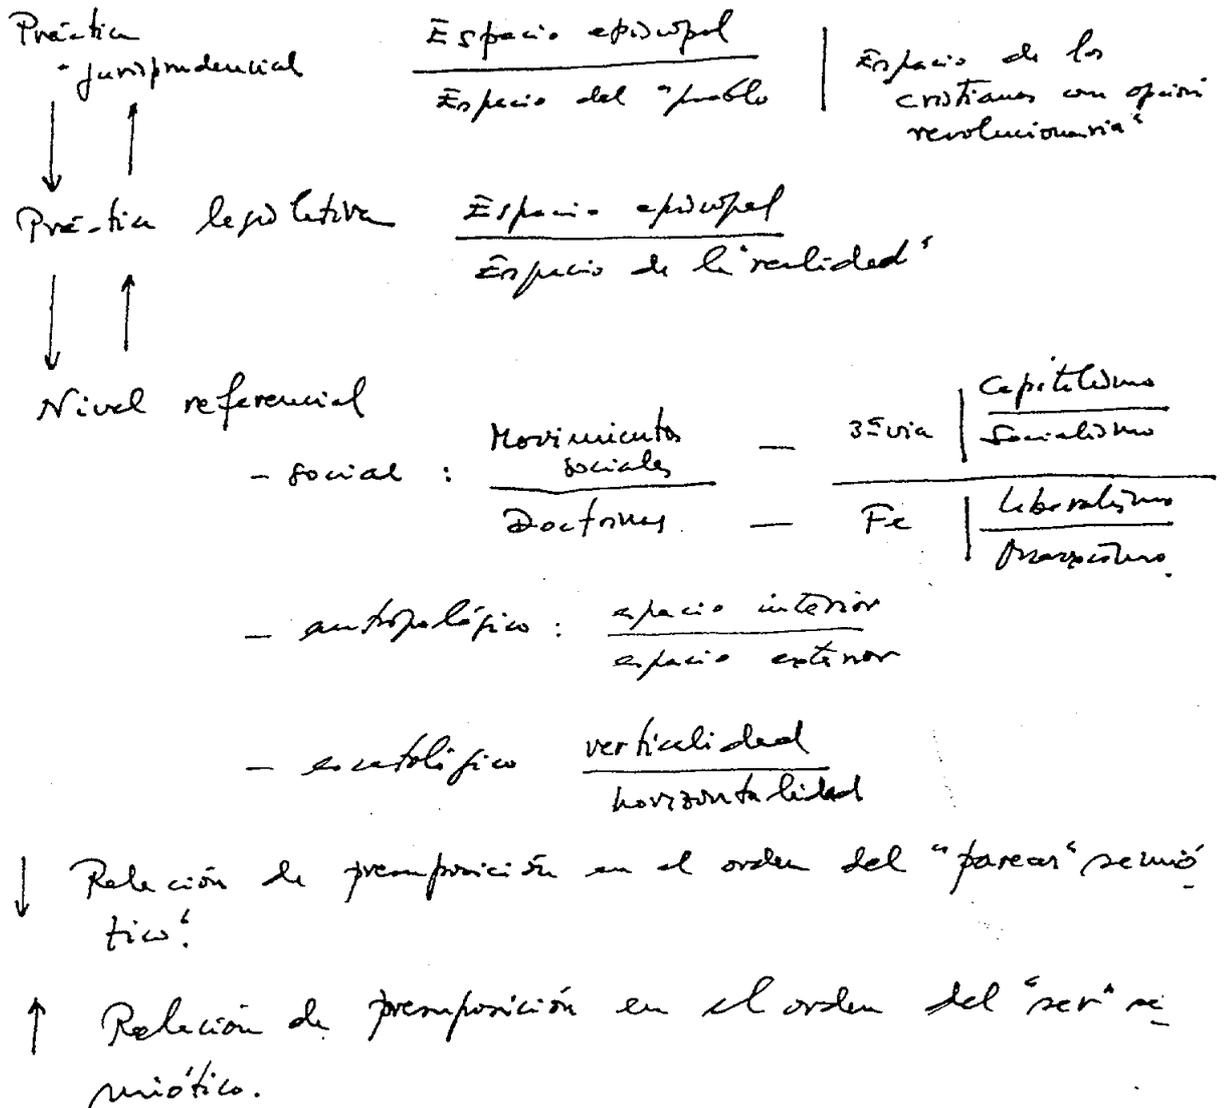 Práctica
jurisprudencial
Espacio episcopal
Espacio del "pueblo
Espacio de los
cristianos con opción
revolucionaria"
Práctica legislativa
Espacio episcopal
Espacio de la "realidad"
Nivel referencial
- social :
Movimientos
sociales
Doctrinas
—
—
3ª via
Capitalismo
Socialismo
Fe
Liberalismo
Marxismo.
- antropológico :
espacio interior
espacio exterior
- escatológico
verticalidad
horizontalidad
↓ Relación de presuposición en el orden del "parecer" semió
tico".
↑ Relación de presuposición en el orden del "ser" se
miótico.